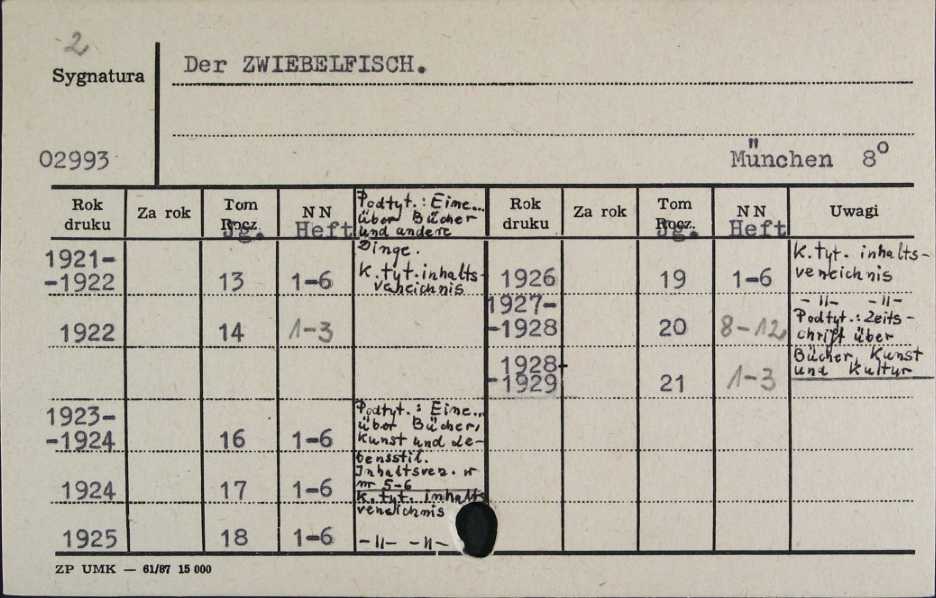 2
Sygnatura
Der ZWIEBELFISCH.
02993
München 8°
Rok druku
Za rok
Tom Rocz. Jg.
NN Heft
Podtyt.: Eine...
über Bücher
und andere
Dinge.
K. tyt. inhalts-
verzeichnis
Rok druku
Za rok
Tom Rocz. Jg.
NN Heft
Uwagi
1921-
-1922 13 1-6
1922 14 1-3
1923-
-1924 16 1-6
Podtyt.: Eine...
über Bücher,
Kunst und Le-
bensstil.
Inhaltsverz. w
nr 5-6
1924 17 1-6
K. tyt. inhalts
verzeichnis
1925 18 1-6 -"- -"-
1926 19 1-6
K. tyt. inhalts-
verzeichnis
1927-
-1928 20 8-12
-"- -"-
Podtyt.: Zeits-
chrift über
Bücher, Kunst
und Kultur
1928-
-1929 21 1-3
ZP UMK — 61/87 15 000